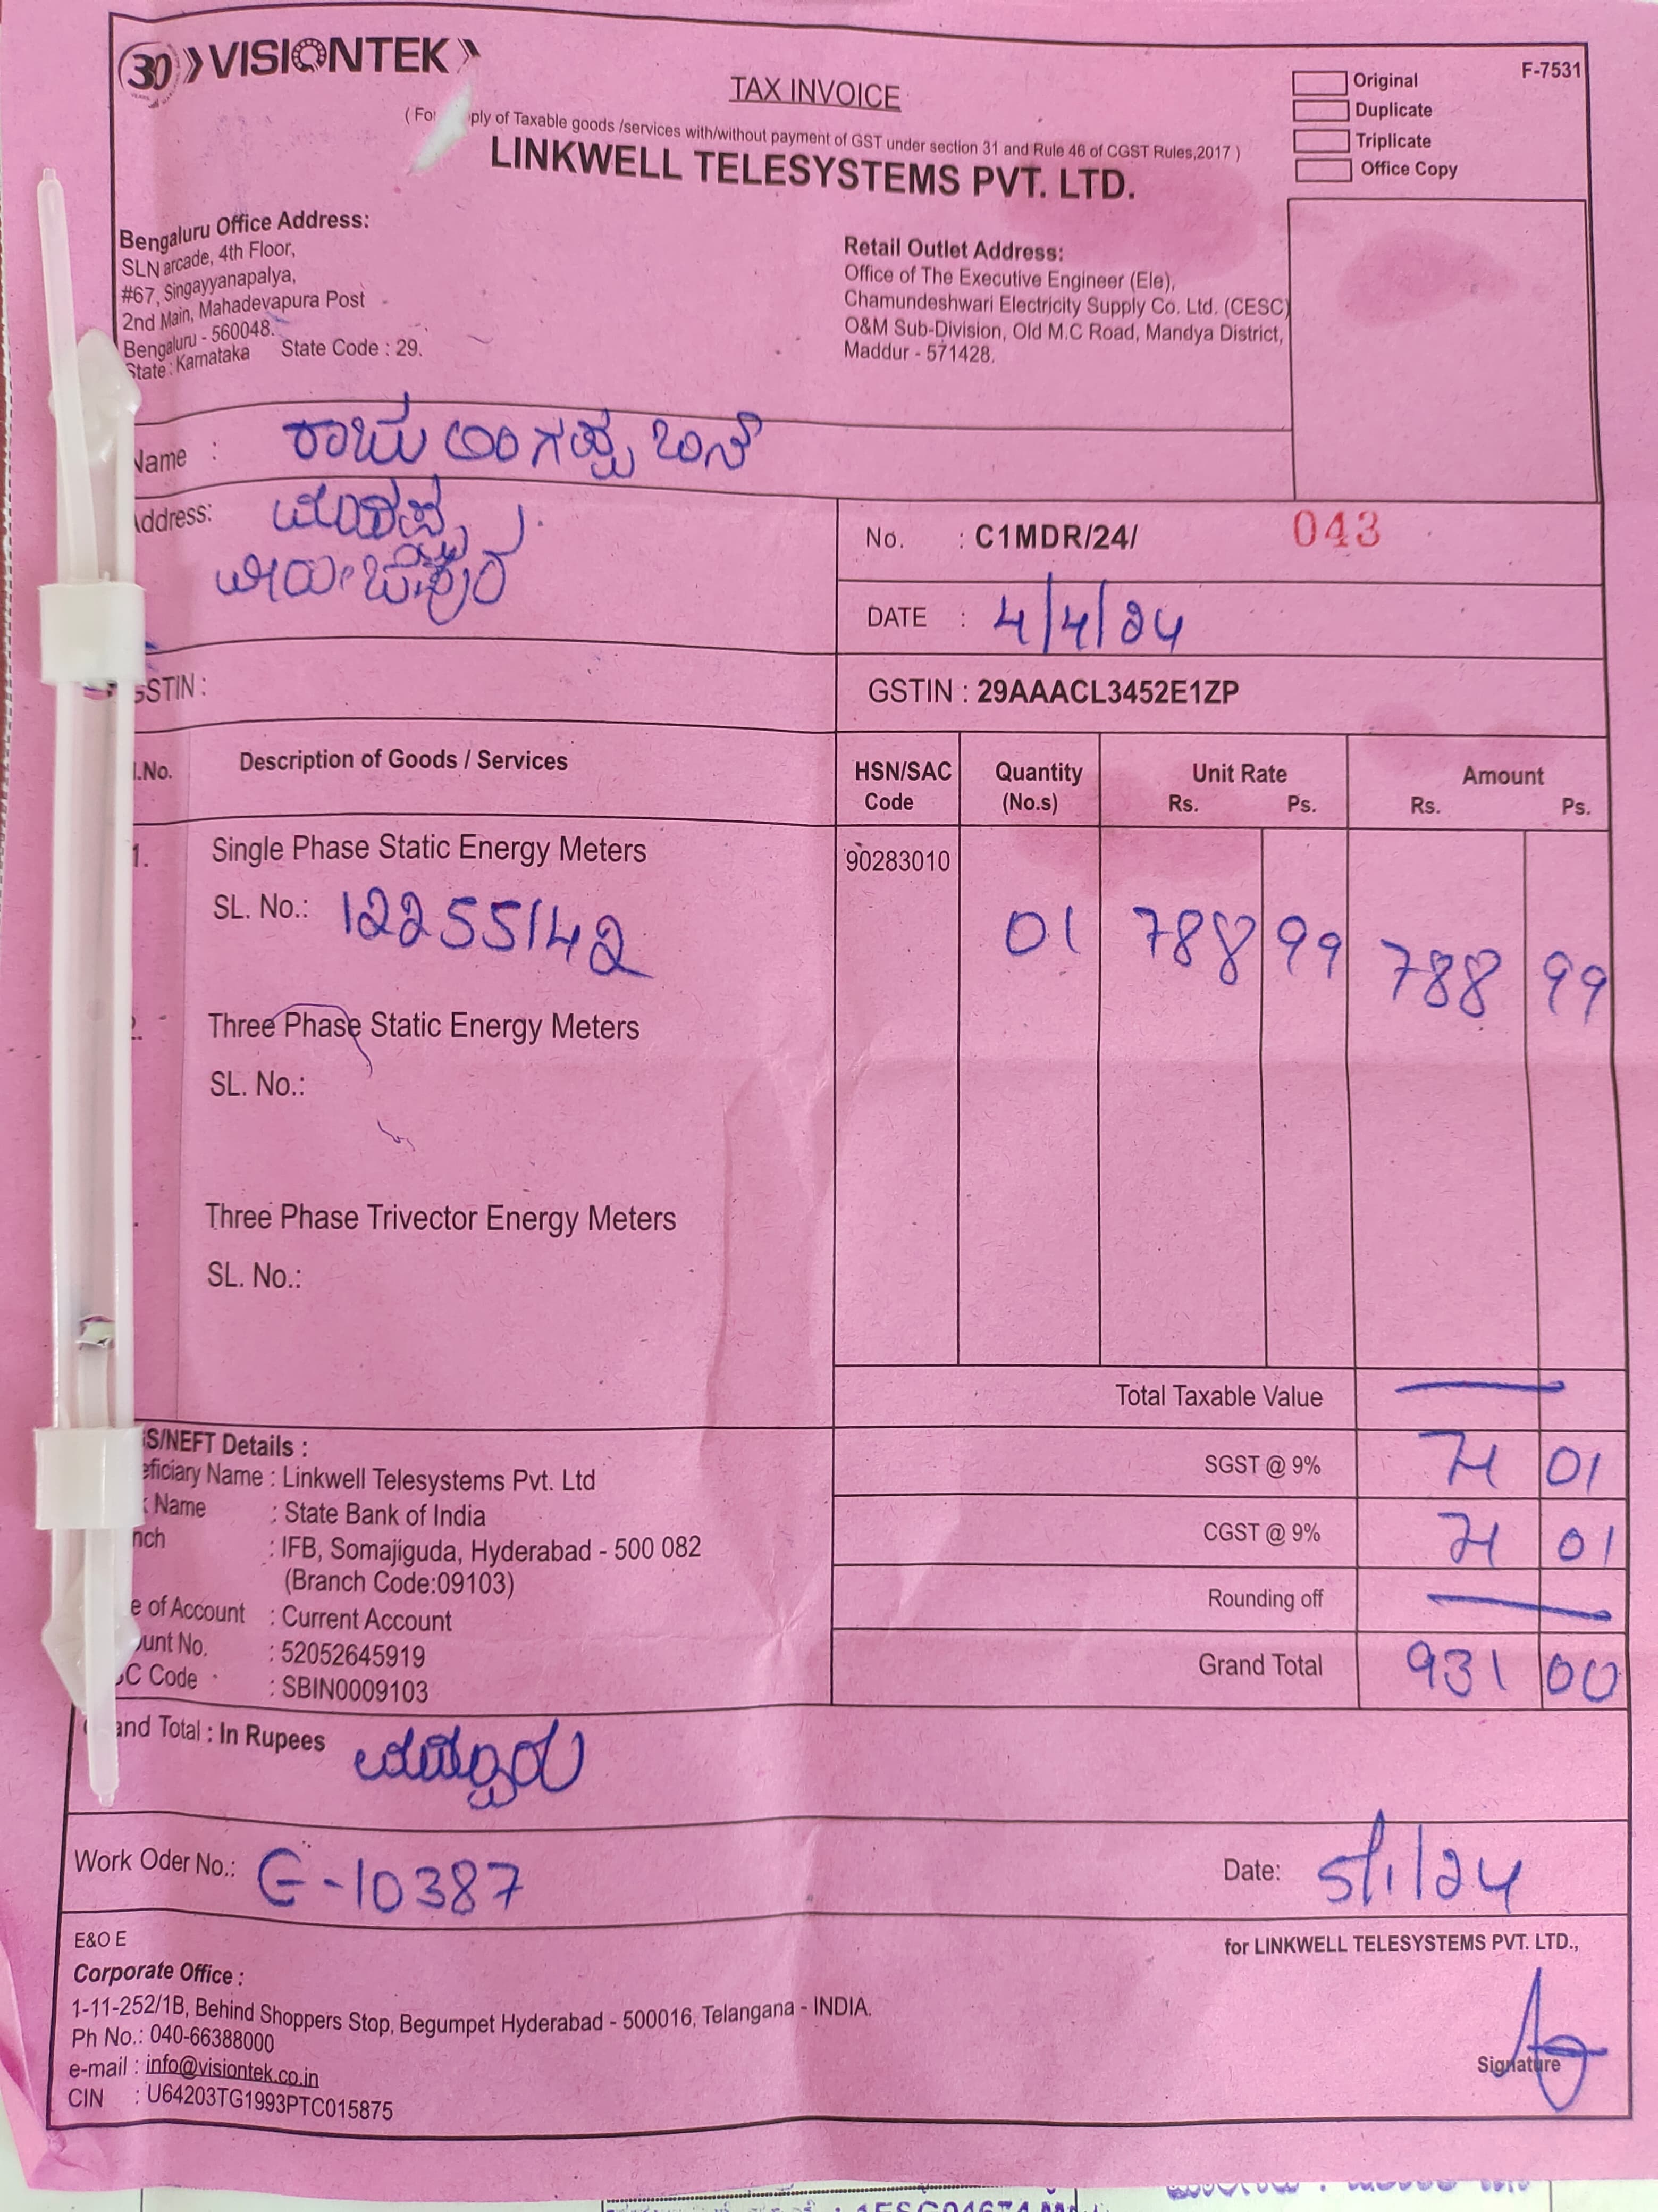 30 VISIONTEK
F-7531
TAX INVOICE
Original
Duplicate
Triplicate
Office Copy
of Taxable goods /services with/without payment of GST under section 31 and Rule 46 of CGST Rules,2017 )
LINKWELL TELESYSTEMS PVT. LTD.
Bengaluru Office Address:
SLN arcade, 4th Floor,
#67, Singayyanapalya,
2nd Main, Mahadevapura Post
Bengaluru - 560048.
State : Karnataka State Code : 29.
Retail Outlet Address:
Office of The Executive Engineer (Ele),
Chamundeshwari Electricity Supply Co. Ltd. (CESC)
O&M Sub-Division, Old M.C Road, Mandya District,
Maddur - 571428.
Name :
Address:
No. : C1MDR/24/ 043
DATE : 4/4/24
GSTIN :
GSTIN : 29AAACL3452E1ZP
Description of Goods / Services HSN/SAC Code Quantity (No.s) Unit Rate Rs. Ps. Amount Rs. Ps.
1. Single Phase Static Energy Meters 90283010
SL. No.: 12255142 01 788 99 788 99
Three Phase Static Energy Meters
SL. No.:
Three Phase Trivector Energy Meters
SL. No.:
Total Taxable Value
SGST @ 9% 71 01
CGST @ 9% 71 01
Rounding off
Grand Total 931 00
Details :
Name : Linkwell Telesystems Pvt. Ltd
Name : State Bank of India
: IFB, Somajiguda, Hyderabad - 500 082
(Branch Code:09103)
of Account : Current Account
No. : 52052645919
Code : SBIN0009103
Total : In Rupees
Work Oder No.: G-10387 Date: 5/1/24
E&O E
for LINKWELL TELESYSTEMS PVT. LTD.,
Corporate Office :
1-11-252/1B, Behind Shoppers Stop, Begumpet Hyderabad - 500016, Telangana - INDIA.
Ph No.: 040-66388000
e-mail : info@visiontek.co.in
CIN : U64203TG1993PTC015875
Signature